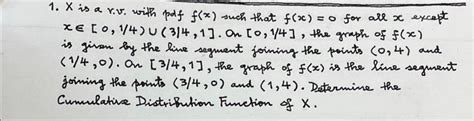 1. X is a r.v. with pdf f(x) such that f(x) = 0 for all x except
x ∈ [0, 1/4) ∪ (3/4, 1]. On [0, 1/4], the graph of f(x)
is given by the line segment joining the points (0, 4) and
(1/4, 0). On [3/4, 1], the graph of f(x) is the line segment
joining the points (3/4, 0) and (1, 4). Determine the
Cumulative Distribution Function of X.